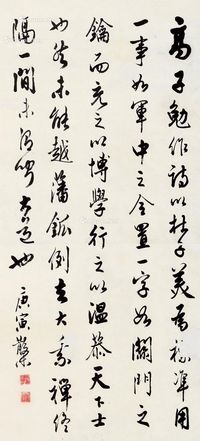 高子勉作詩以杜子美為標準用
一事如軍中之令置一字如關門之
鑰而充之以博學行之以溫恭天下士
也若未能越藩例去大乘禪
隔一間未得聞大道也
庚寅